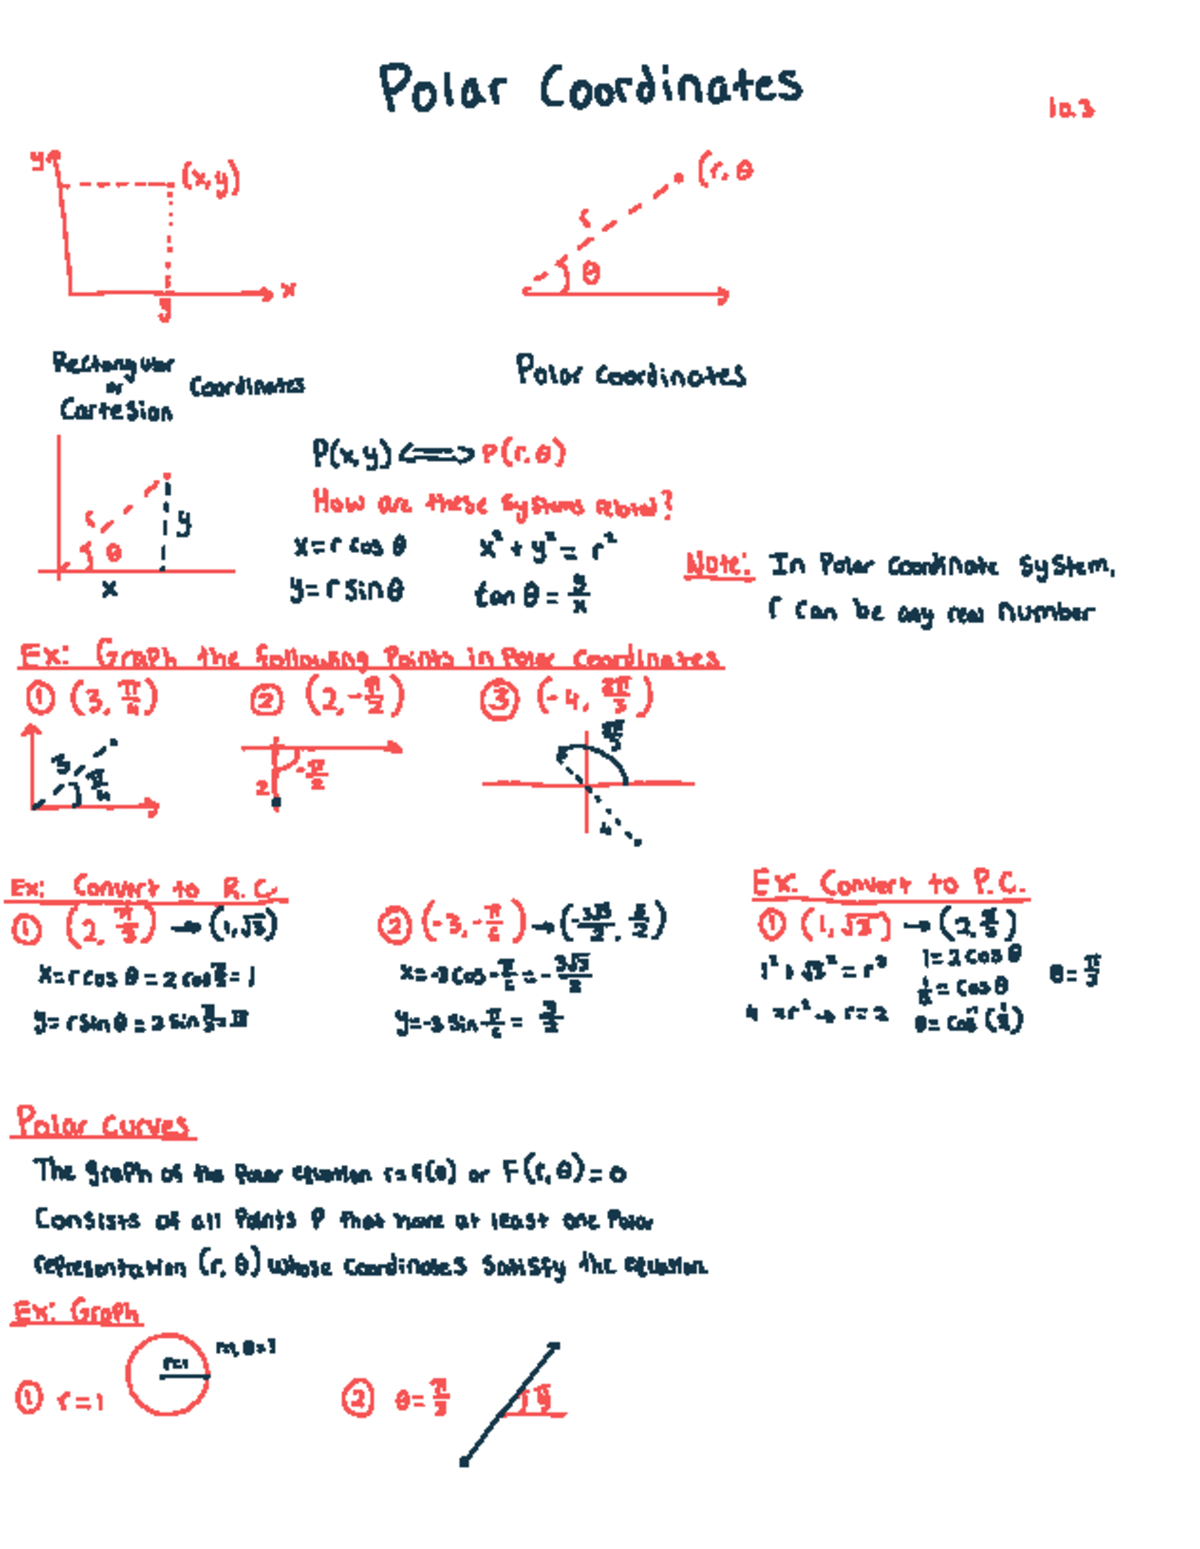 Polar Coordinates
10.3
y
(x,y)
x
y
(r,θ
r
θ
Rectangular
or
Cartesion
Coordinates
Polar Coordinates
P(x,y) ⟺ P(r,θ)
How are these systems related?
r
θ
y
x
x=r cos θ
x²+y²=r²
y=r sin θ
tan θ = y/x
Note: In Polar Coordinate System,
r can be any real number
Ex: Graph the following Points in Polar Coordinates
① (3, π/4)
② (2, -π/2)
③ (-4, 2π/3)
3
π/4
2
-π/2
4
Ex: Convert to R.C.
① (2, π/3) → (1,√3)
x=r cos θ = 2 cos π/3 = 1
y=r sin θ = 2 sin π/3 = √3
② (-3, -π/6) → (-3√3/2, 3/2)
x=-3 cos -π/6 = -3√3/2
y=-3 sin -π/6 = 3/2
Ex: Convert to P.C.
① (1,√3) → (2, π/3)
1²+√3²=r²
4=r² → r=2
1=2cos θ
1/2 = cos θ
θ=cos⁻¹(1/2)
θ=π/3
Polar Curves
The graph of the Polar equation r=f(θ) or F(r,θ)=0
Consists of all Points P that have at least one Polar
representation (r,θ) whose coordinates satisfy the equation.
Ex: Graph
① r=1
r=1
② θ=π/3